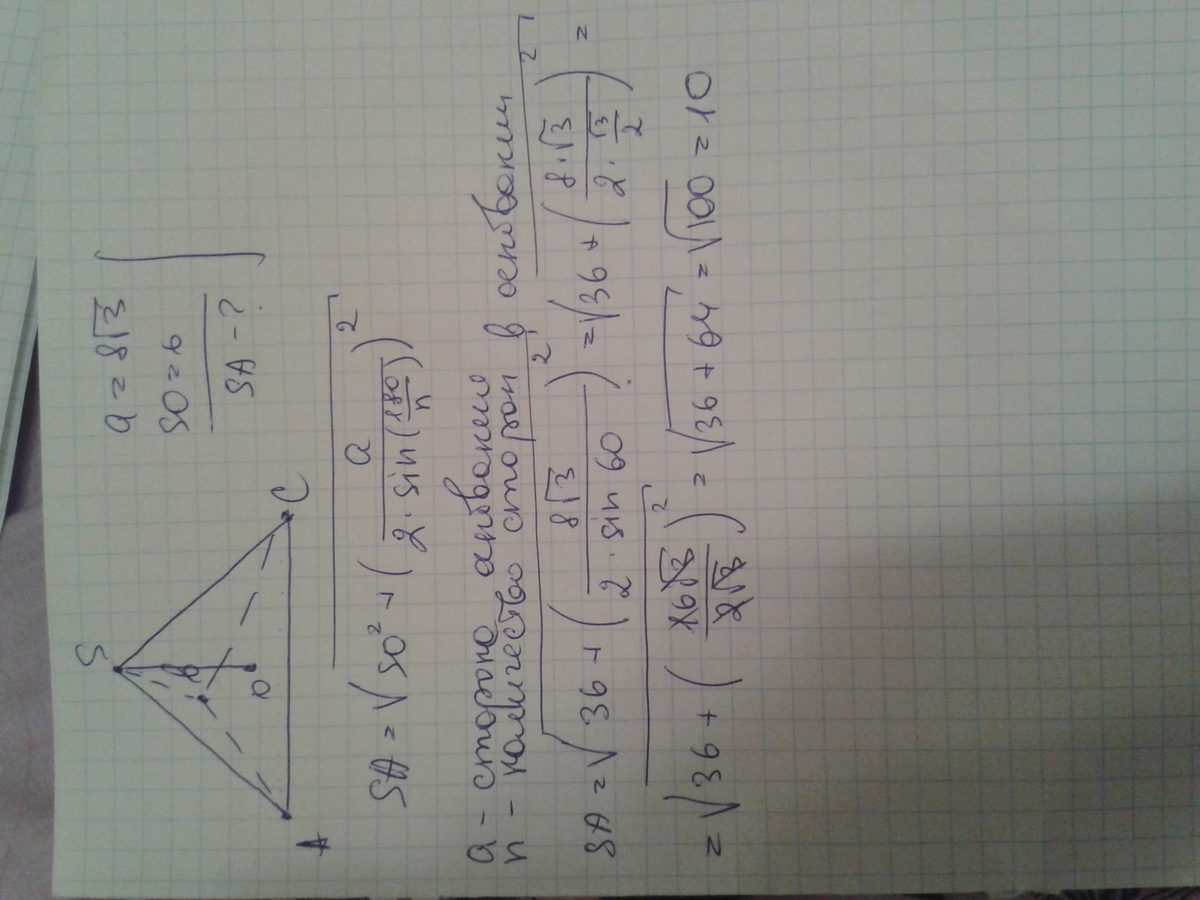 S
B
O
A
C
a = 8√3
SO = 6
SA - ?
SA = √(SO² + (a / (2 · sin(180/n)))²)
a - сторона
n - количество сторон в основании
SA = √(36 + (8√3 / (2 · sin 60))²) = √(36 + (8·√3 / (2 · √3/2))²) =
= √(36 + (16√3 / 2√3)²) = √(36 + 64) = √100 = 10